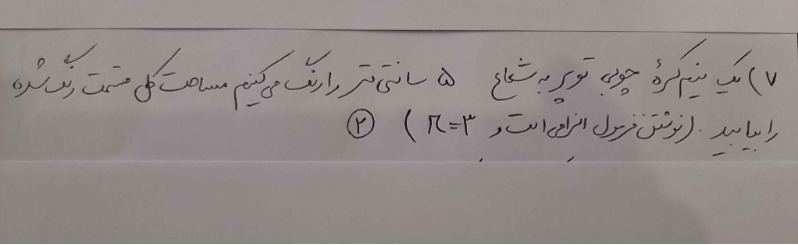 ۷) یک نیم‌کرهٔ چوبی توپر به شعاع ۵ سانتی‌متر را رنگ می‌کنیم مساحت کل قسمت رنگ شده
را بیابید. (نوشتن فرمول الزامی است و π=۳) ۲